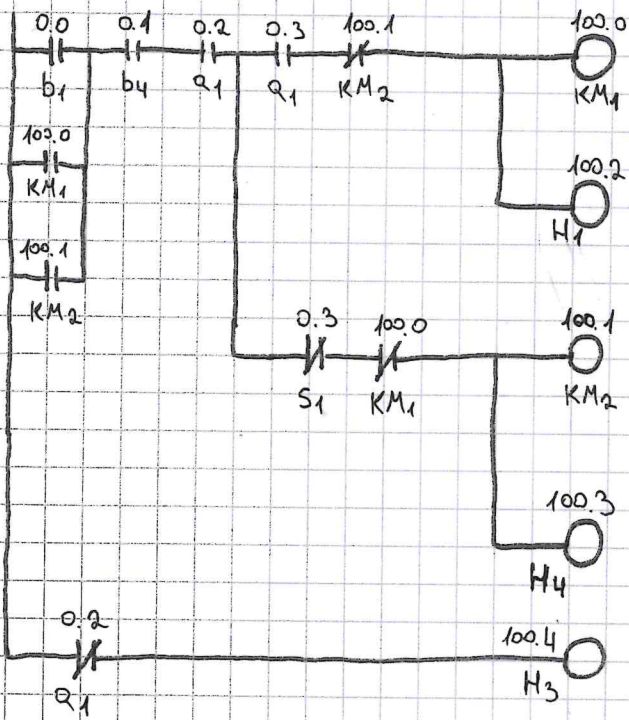 0.0 0.1 0.2 0.3 100.1 100.0
b1 b4 Q1 Q1 KM2 KM1
100.0
KM1
100.2
H1
100.1
KM2
0.3 100.0 100.1
S1 KM1 KM2
100.3
H4
0.2 100.4
Q1 H3